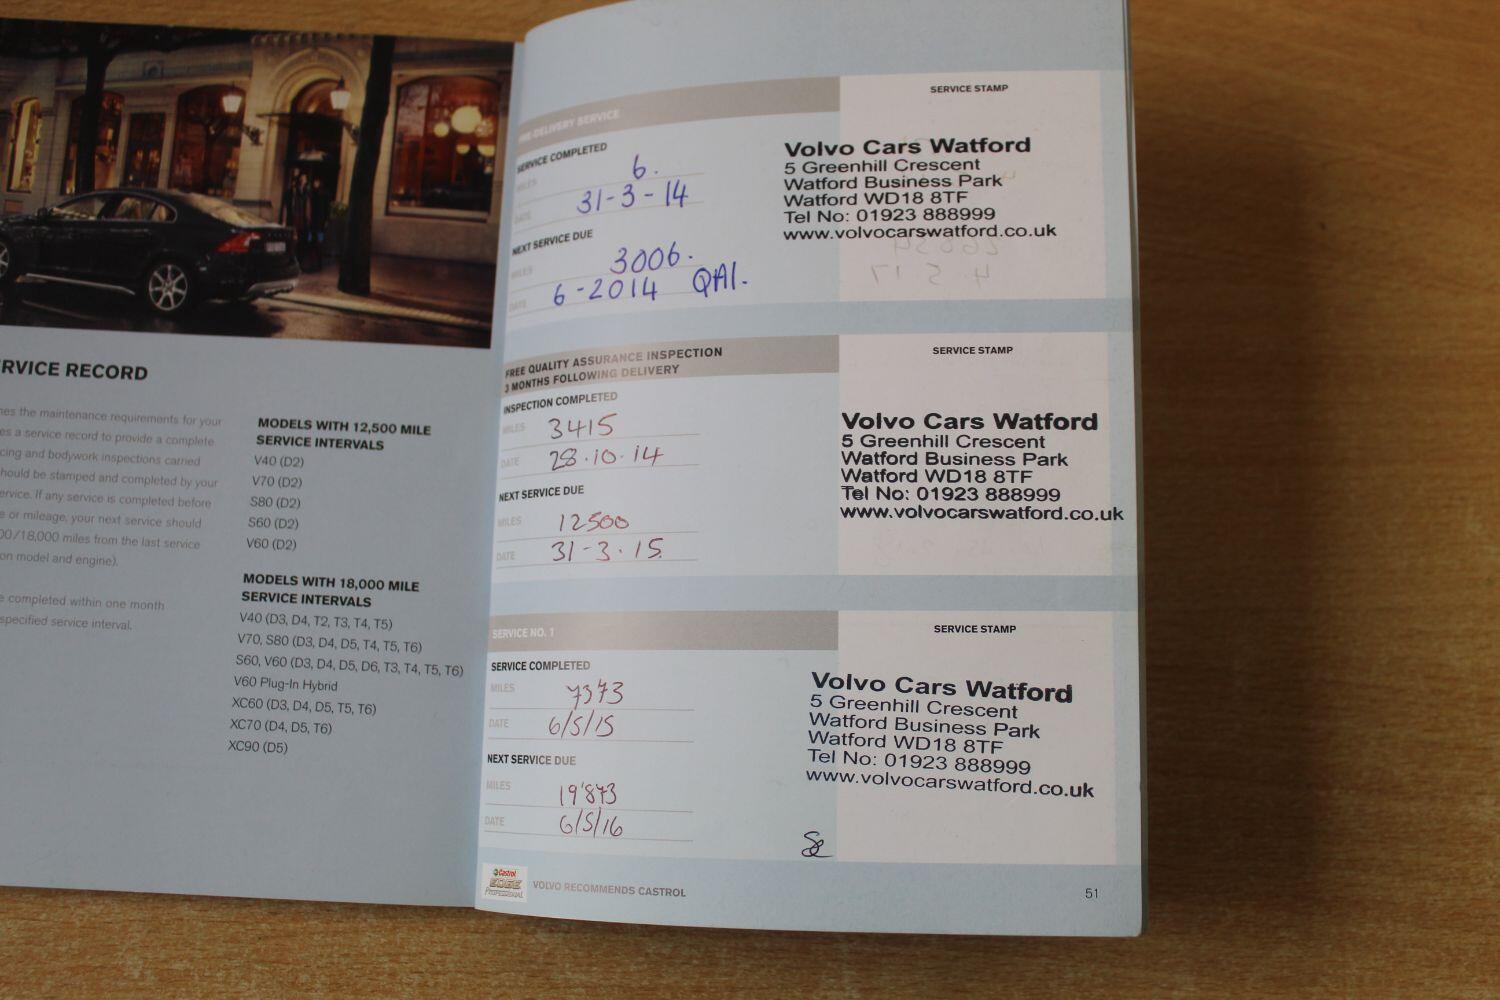 RVICE RECORD
nes the maintenance requirements for your
es a service record to provide a complete
cing and bodywork inspections carried
hould be stamped and completed by your
ervice. If any service is completed before
e or mileage, your next service should
00/18,000 miles from the last service
on model and engine).
e completed within one month
specified service interval.
MODELS WITH 12,500 MILE
SERVICE INTERVALS
V40 (D2)
V70 (D2)
S80 (D2)
S60 (D2)
V60 (D2)
MODELS WITH 18,000 MILE
SERVICE INTERVALS
V40 (D3, D4, T2, T3, T4, T5)
V70, S80 (D3, D4, D5, T4, T5, T6)
S60, V60 (D3, D4, D5, D6, T3, T4, T5, T6)
V60 Plug-In Hybrid
XC60 (D3, D4, D5, T5, T6)
XC70 (D4, D5, T6)
XC90 (D5)
PRE-DELIVERY SERVICE
SERVICE COMPLETED
MILES 6.
DATE 31-3-14
NEXT SERVICE DUE
MILES 3006.
DATE 6-2014 QAI.
SERVICE STAMP
Volvo Cars Watford
5 Greenhill Crescent
Watford Business Park
Watford WD18 8TF
Tel No: 01923 888999
www.volvocarswatford.co.uk
FREE QUALITY ASSURANCE INSPECTION
3 MONTHS FOLLOWING DELIVERY
INSPECTION COMPLETED
MILES 3415
DATE 28.10.14
NEXT SERVICE DUE
MILES 12500
DATE 31-3.15
SERVICE STAMP
Volvo Cars Watford
5 Greenhill Crescent
Watford Business Park
Watford WD18 8TF
Tel No: 01923 888999
www.volvocarswatford.co.uk
SERVICE NO. 1
SERVICE COMPLETED
MILES 7373
DATE 6/5/15
NEXT SERVICE DUE
MILES 19'873
DATE 6/5/16
SERVICE STAMP
Volvo Cars Watford
5 Greenhill Crescent
Watford Business Park
Watford WD18 8TF
Tel No: 01923 888999
www.volvocarswatford.co.uk
Castrol
EDGE
PROFESSIONAL
VOLVO RECOMMENDS CASTROL
51